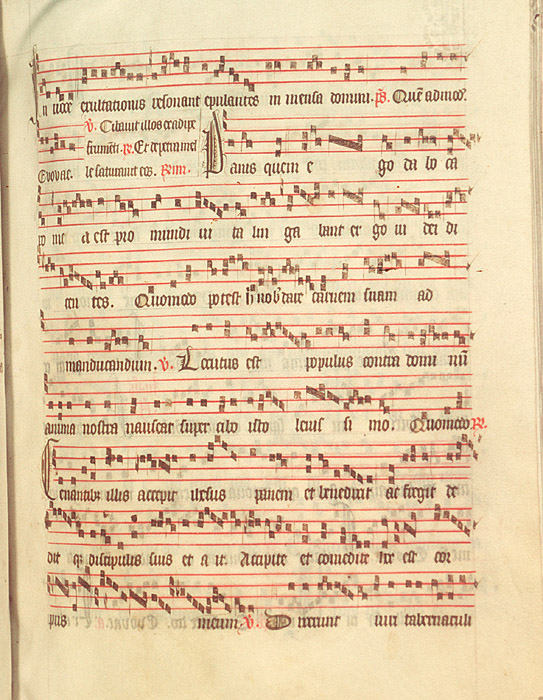 n uoce exultationis resonant epulantes in mensa domini. ps. Quē admod.
v. Cibauit illos ex adipe
frumēti. R. Et de petra mel
Euouae. le saturauit eos. Rm. Panis quem e go da bo ca
ro me a est pro mundi ui ta liti ga bant er go iu dei di
cen tes. Quomodo potest h nob dare carnem suam ad
manducandum. v. Locutus est populus contra domi nū
anima nostra nauseat super cibo isto leuis si mo. Quomodo R.
Cenantibꝰ illis accepit ihesus panem et benedixit ac fregit de
dit qꝫ discipulis suis et a it. Accipite et comedite hoc est cor
pus meum. v. Dixerunt uiri tabernaculi